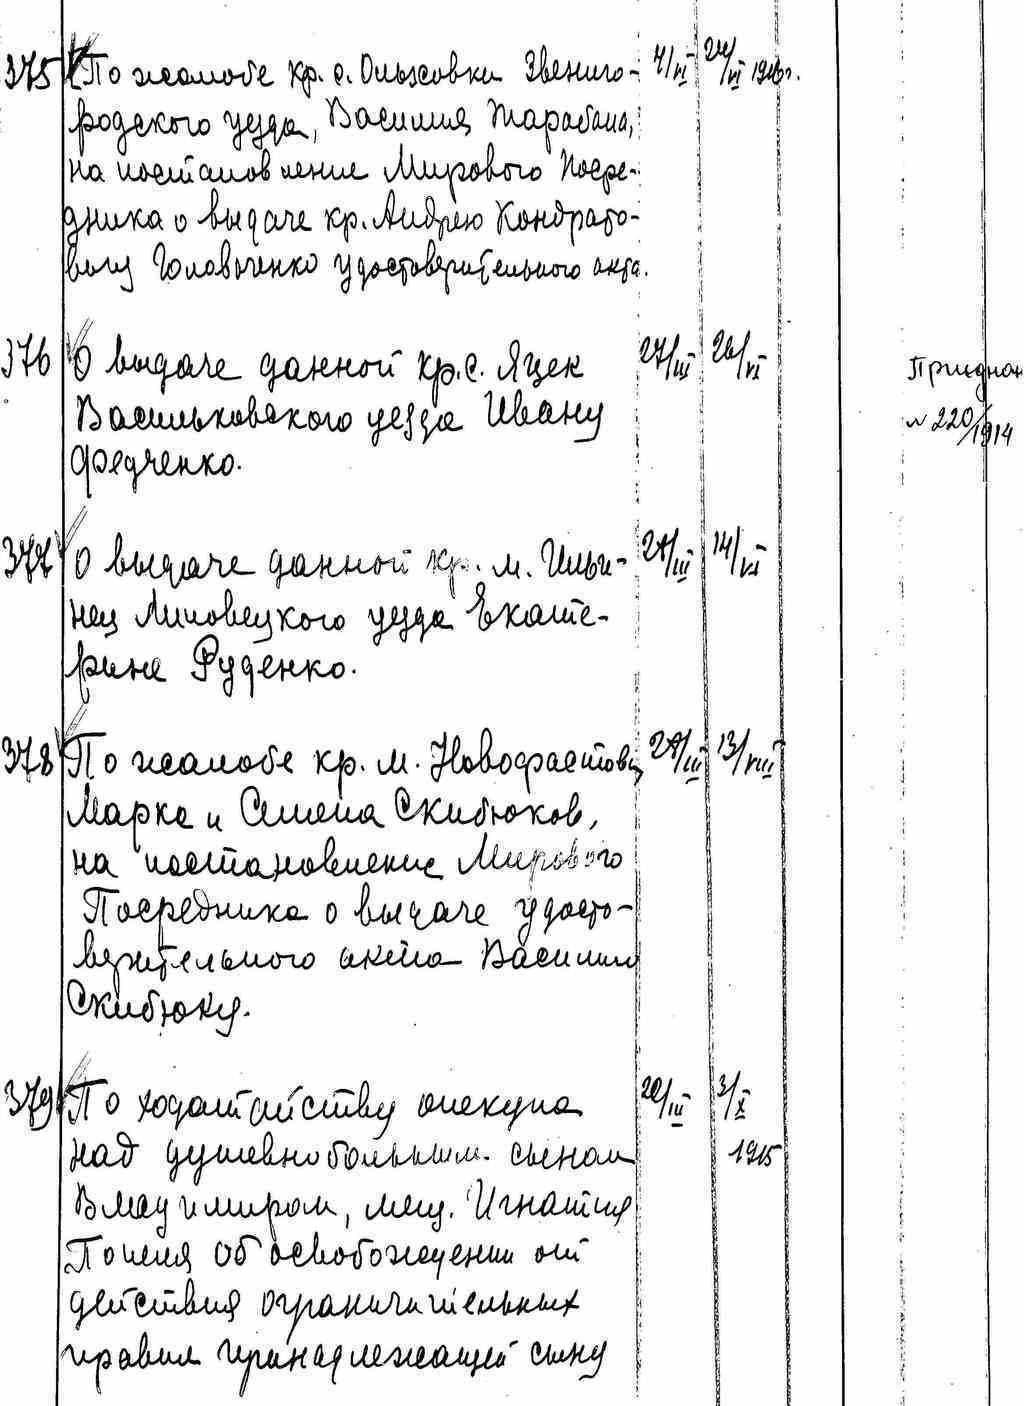 375 По жалобе кр. с. Ольховки Звениго- 7/VI 24/VI 1916 г.
родского уезда, Василия Тарабана,
на постановление Мирового Посре-
дника о выдаче кр. Андрею Кондрато-
вичу Головченко удостоверительного акта.
376 О выдаче данной кр. с. Яцек 27/III 26/VI
Васильковского уезда Ивану № 220/1914
Федченко.
377 О выдаче данной кр. м. Ильи- 27/III 14/VI
нец Липовецкого уезда Екате-
рине Руденко.
378 По жалобе кр. м. Новофастовец 27/III 13/VIII
Марка и Семена Скибюков,
на постановление Мирового
Посредника о выдаче удосто-
верительного акта Василию
Скибюку.
379 По ходатайству опекуна /III 3/X
над душевнобольным сыном 1915
Владимиром, мещ. Игнатия
об освобождении от
действия ограничительных
правил принадлежащей сыну